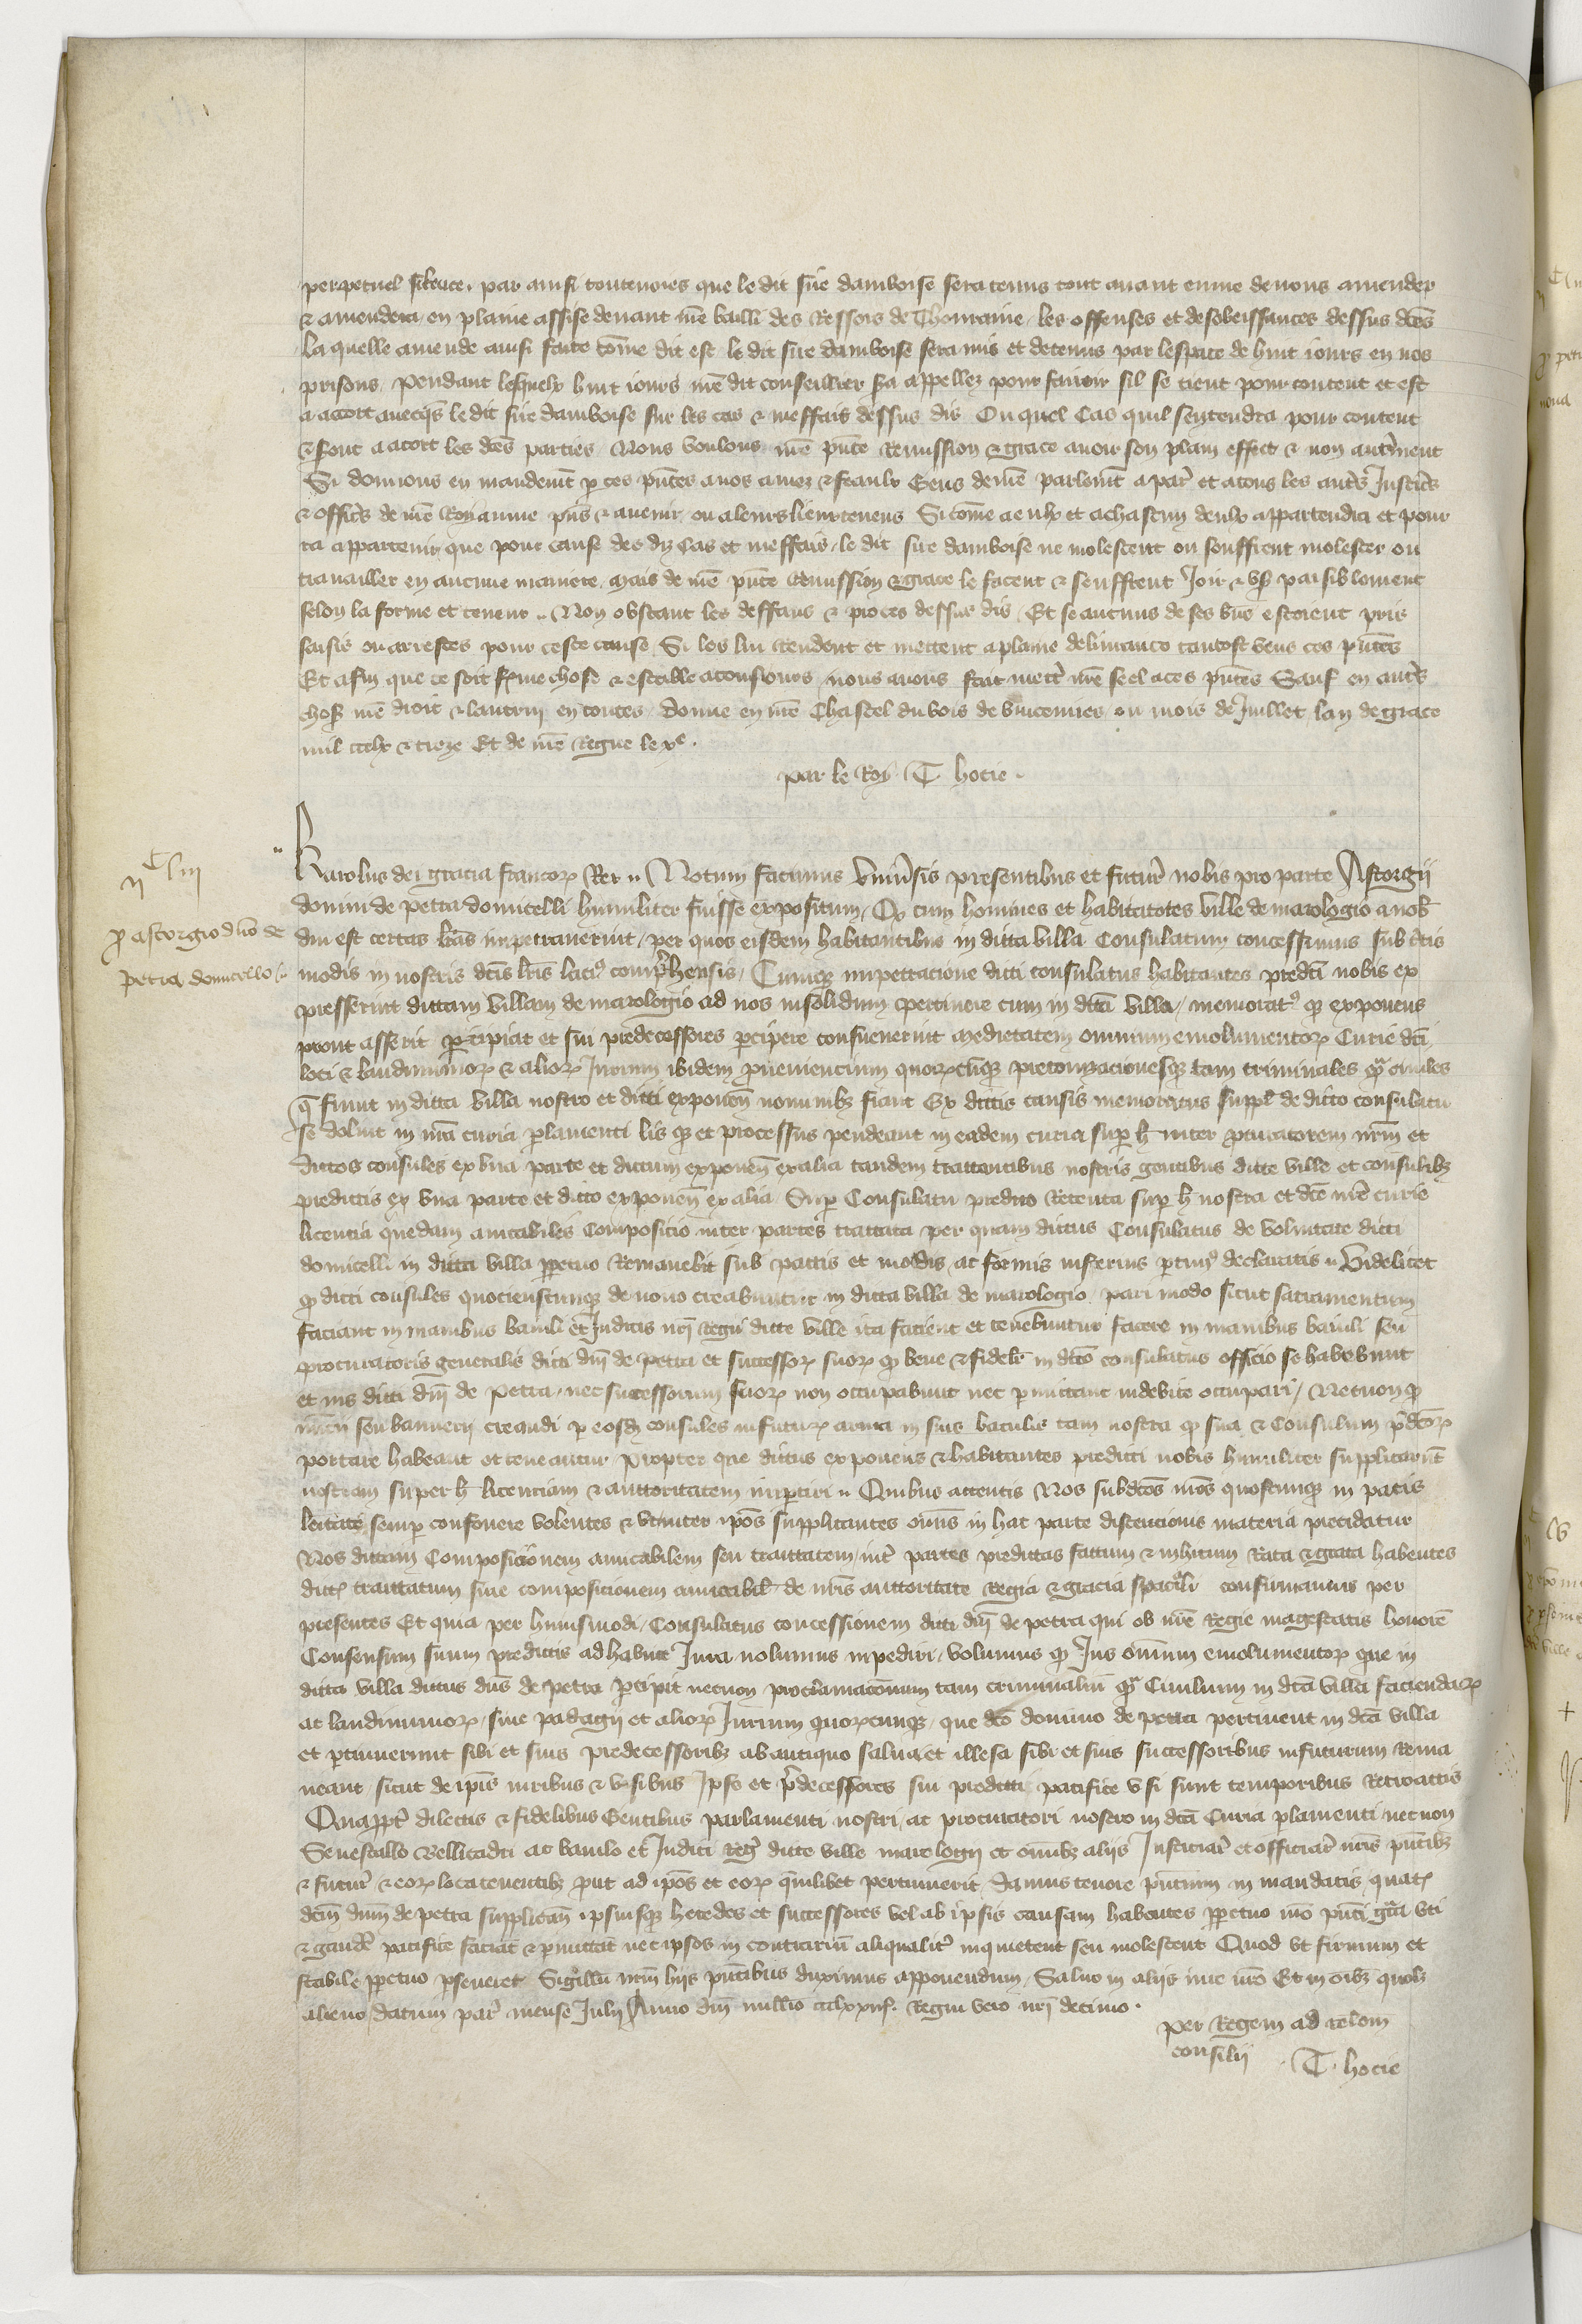 perpetuel silence. par ainsi toutevoies que le dit sire damboise sera tenus tout avant euvre de nous amender
& amendera en plaine assise devant nre bailli des Ressors de Thouraine les offenses et desobeissances dessus dces
La quelle amende ainsi faite come dit est le dit sire damboise sera mis et detenus par lespace de huit iours en nos
prisons pendant lesquelx huit iours nre dit conseillier sera appellez pour savoir sil se tient pour content et est
a acort avecqs le dit sire damboise sur les cas & meffais dessus dis Ou quel Cas quil sentendra pour content
& sont a acort les dces parties Nous voulons nre pnte Remission & grace avoir son plain effect & non autrement
Si donnons en mandement p ces pntes a nos amez & feaulx Gens de nre parlemt a par et a tous les autrs Justices
& offics de nre Royaume pns & avenir ou a leurs lieuxtenens Si come a eulx et a chascun deulx appartendra et pour
ra appartenir que pour cause des diz Cas et meffais le dit sire damboise ne molestent ou seuffrent molester ou
travailler en aucune maniere Mais de nre pnte Remission & grace le facent & seuffrent Joir & user paisiblement
selon la forme et teneur Non obstant les deffaus & proces dessus dis Et se aucuns de ses biens estoient pris
saisis ou arrestes pour ceste cause Si les lui rendent et mettent a plaine delivrance tantost veus ces pntes
Et afin que ce soit ferme chose & estable a tousiours nous avons fait mettr nre seel a ces pntes Sauf en autrs
choses nre droit & lautrui en toutes Donne en nre Chastel du bois de Vincennes ou mois de Juillet lan de grace
mil ccclx & treze Et de nre Regne le xe.
par le Roy T. hocie.
n clii
p astorgio dno de
petra domicello
Karolus dei gracia francor Rex Notum facimus Universis presentibus et futuris nobis pro parte Astorgii
domini de petra domicelli humiliter fuisse expositum Qd cum homines et habitatores ville de marologio a nob
diu est certas lras impetraverint per quas eisdem habitantibus in dicta villa Consulatum concessimus sub certis
modis in nostris dcis lris laci comprehensis Cumque impetracione dicti consulatus habitantes predcti nobis ex
presserint dictam villam de marologio ad nos insolidum pertinere cum in dcta villa memorat qz exponens
prout asserit percipiat et sui predecessores percipere consueverint medietatem omnium emolumentor Curie dcti
loci & laudimiorum & alior Jurium ibidem provenientium quorcuqz preconizacionesque tam criminales qm civiles
q fiunt in dicta villa nostro et dicti exponen nominibz fiant Ex dictis causis memoratus suppl de dicto consulatu
se doluit in nra curia parlamenti lis qz et processus pendeant in eadem curia sup h inter procuratorem nrm et
dictos consules ex una parte et dictum exponen ex alia tandem tractantibus nostris gentibus dicte ville et consulibz
predictis ex una parte et dicto exponen ex alia Sup Consulatu predicto Retenta sup h nostra et dce nre curie
licentia quedam amicabiles Composicio inter partes tractata per quam dictus Consulatus de voluntate dicti
domicelli in dicta villa ppetuo Remanebit sub pactis et modis ac formis inferius declaratis Videlicet
qd dicti consules quocienscunque de novo creabuntur in dicta villa de marologio pari modo sicut sacramentum
faciant in manibus bauli et Judicis nri Regii dicte ville ita facient et tenebuntur facere in manibus baiuli seu
procuratoris generalis dicti dni de petra et successor suor qd bene & fideler in dcto consulatus officio se habebunt
et ius dicti dni de petra nec successorum suor non occupabunt nec pmittant indebite occupari Necnon qd
nuncii seu bannerii creandi p eosd consules in futur arma in suis baculis tam nostra qd sua & Consulum pdctor
portare habeant et teneantur Propter que dictus exponens & habitantes predicti nobis humiliter supplicarunt
nostram super h licenciam & auctoritatem impertiri Quibus attentis Nos subdctos nros quoscunque in pacis
semp confovere volentes & ut inter ipos supplicantes omis in hac parte discencionis materia precidatur
Nos dictam Composicionem amicabilem seu tractatum int partes predictas factum & inhitum Rata & grata habentes
dict tractatum sive composicionem amicabil de nris auctoritate Regia & gracia spaciali confirmamus per
presentes Et quia per huiusmodi Consulatus concessionem dicti dni de petra qui ob nre Regie magestatis honore
Consensum suum predictis adhibuit Jura nolumus impediri volumus qd Jus omnium emolumentor que in
dicta villa dictus dns de petra percipit necnon proclamaconum tam criminaliu qm Civilium in dcta villa faciendar
ac laudimiorum sive padagii et alior Jurium quorcunque que dco domino de petra pertinent in dcta villa
et pertinuerunt sibi et suis predecessoribz ab antiquo salva et illesa sibi et suis successoribus in futurum Rema
neant sicut de ipis iuribus & usibus Ipse et predecessores sui predicti pacifice usi sunt temporibus Retroactis
Quappt dilectis & fidelibus Gentibus parlamenti nostri ac procuratori nostro in dcta Curia plamenti necnon
Senescallo Bellicadri ac baiulo et Judici reg dicte ville marologii et omibz aliis Justiciar et officiar nris pntibz
& futur & eor locatenentibz prout ad ipos et eor quilibet pertinuerit Damus tenore pntium in mandatis quat
dcm dnm de petra supplican ipsiusque heredes et successores vel ab ipsis causam habentes ppetuo nra pnti gra uti
& gaudere pacifice faciat & pmittat nec ipsos in contrariu aliqualit inquietent seu molestent Quod ut firmum et
stabile ppetuo pseveret Sigillu nrm hiis pntibus duximus apponendum Salvo in aliis iure nro Et in oibz quolz
alieno Datum par mense Julii Anno dni millio ccclxxiii. Regni vero nri decimo.
per Regem ad relom
consilii T. hocie